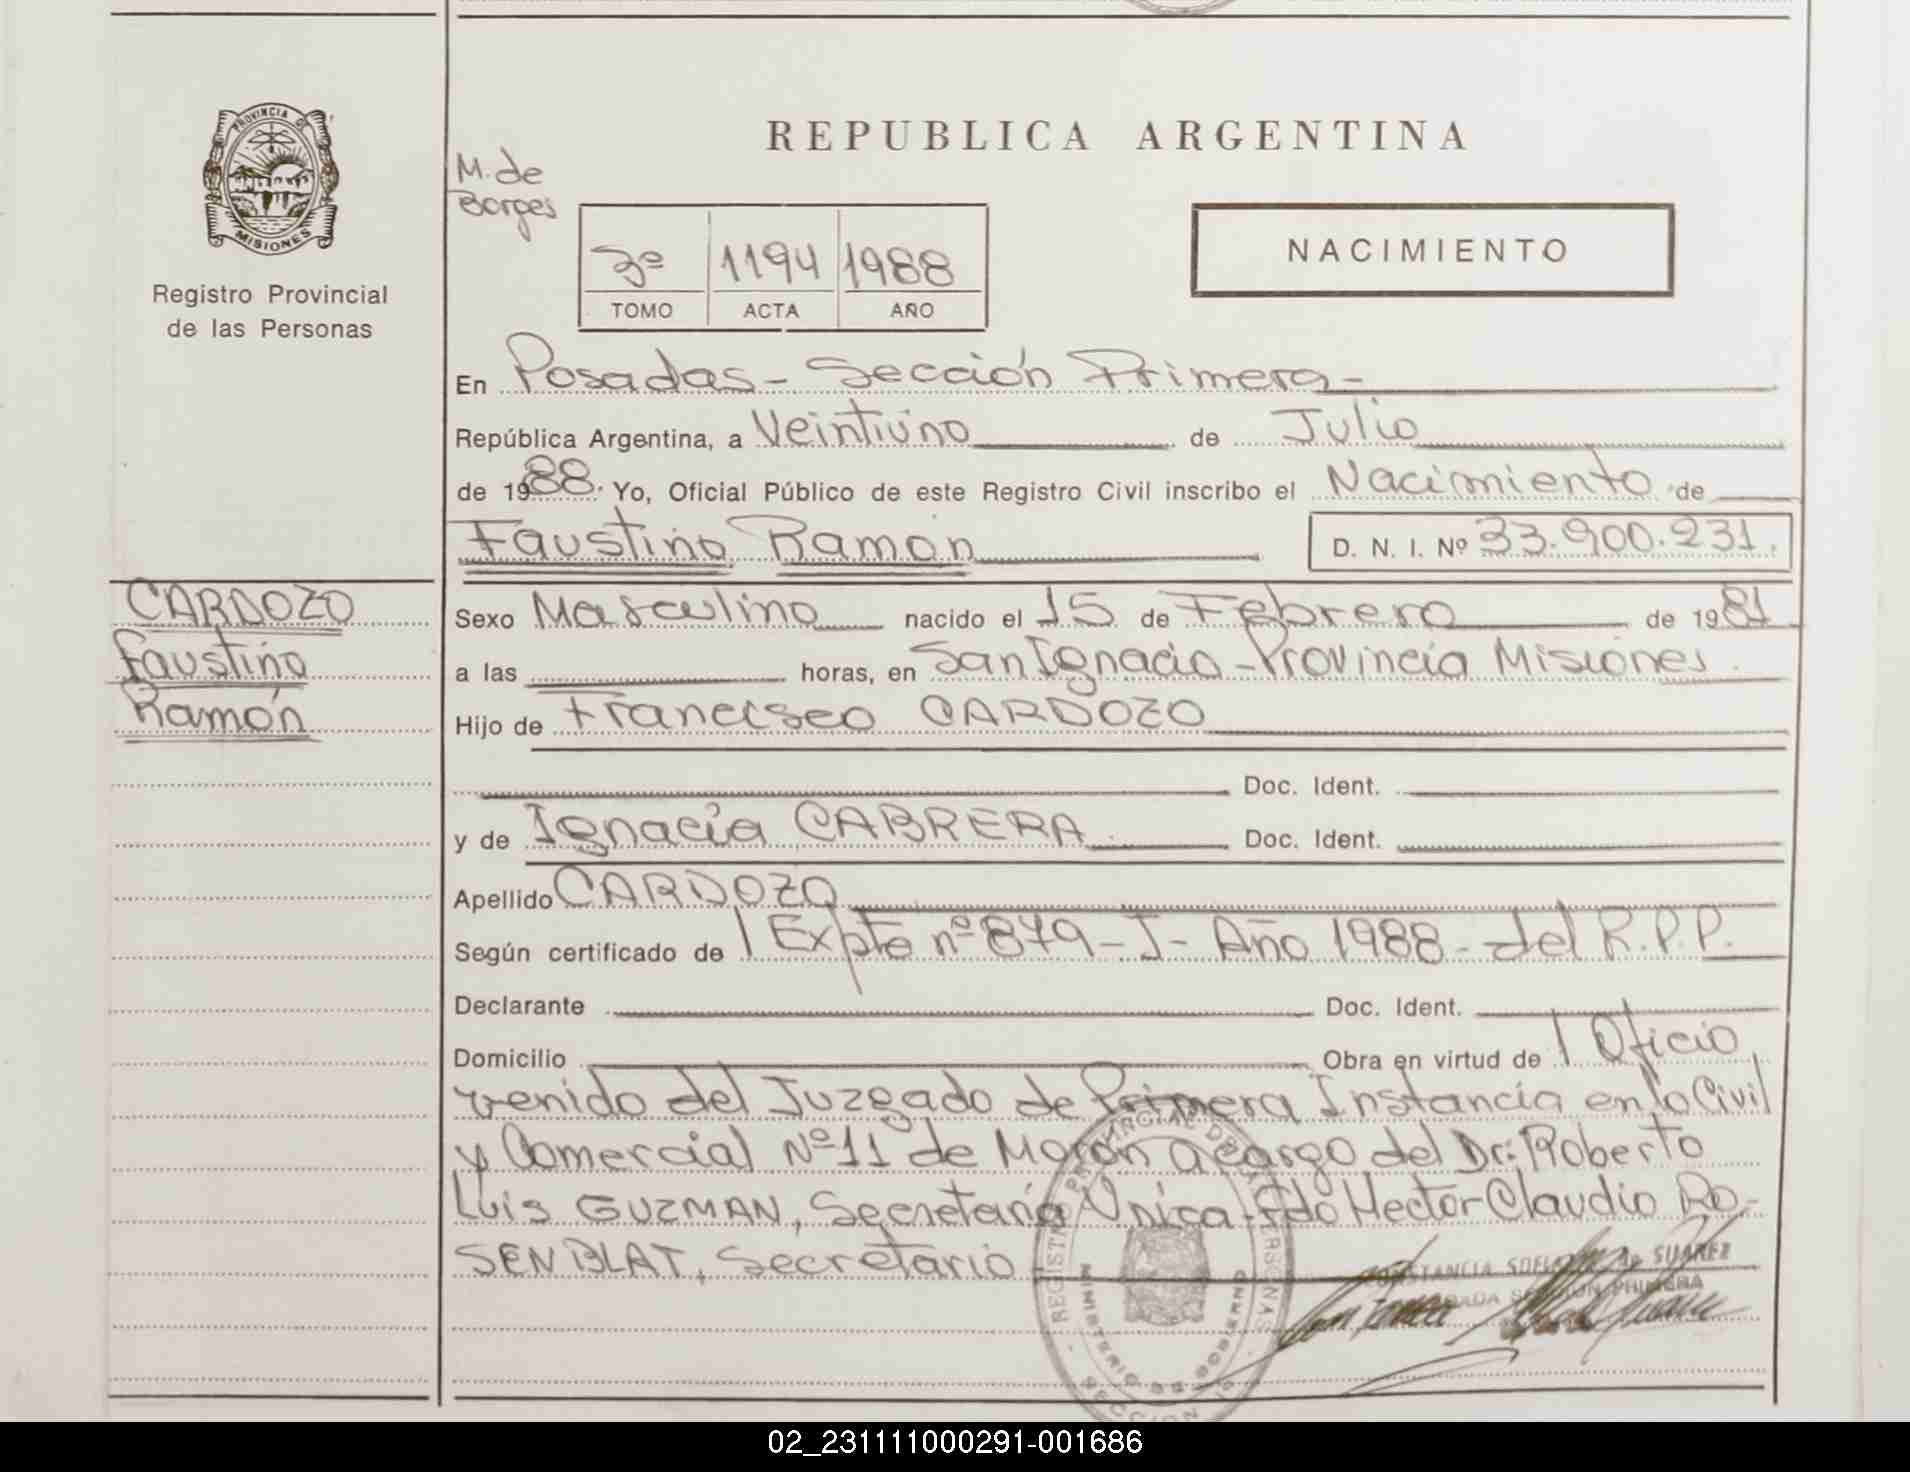 PROVINCIA DE
MISIONES
Registro Provincial
de las Personas
REPUBLICA ARGENTINA
M. de
Borges
NACIMIENTO
3º 1194 1988
TOMO ACTA AÑO
En Posadas - Sección Primera -
República Argentina, a Veintiuno de Julio
de 1988. Yo, Oficial Público de este Registro Civil inscribo el Nacimiento de
Faustino Ramon D. N. I. Nº 33.900.231.
CARDOZO
Faustino
Ramón
Sexo Masculino nacido el 15 de Febrero de 1981
a las horas, en San Ignacio - Provincia Misiones.
Hijo de Francisco CARDOZO
Doc. Ident.
y de Ignacia CABRERA Doc. Ident.
Apellido CARDOZO
Según certificado de / Expte nº 879 - I - Año 1988 - del R.P.P.
Declarante Doc. Ident.
Domicilio Obra en virtud de / Oficio
venido del Juzgado de Primera Instancia en lo Civil
y Comercial Nº 11 de Morón a cargo del Dr: Roberto
Luis GUZMAN, Secretaría Única - Fdo Hector Claudio RO-
SENBLAT, Secretario
REGISTRO PROVINCIAL DE LAS PERSONAS
MINISTERIO DE GOBIERNO
SECCION
CONSTANCIA de SUAREZ
SECCION PRIMERA
02_231111000291-001686